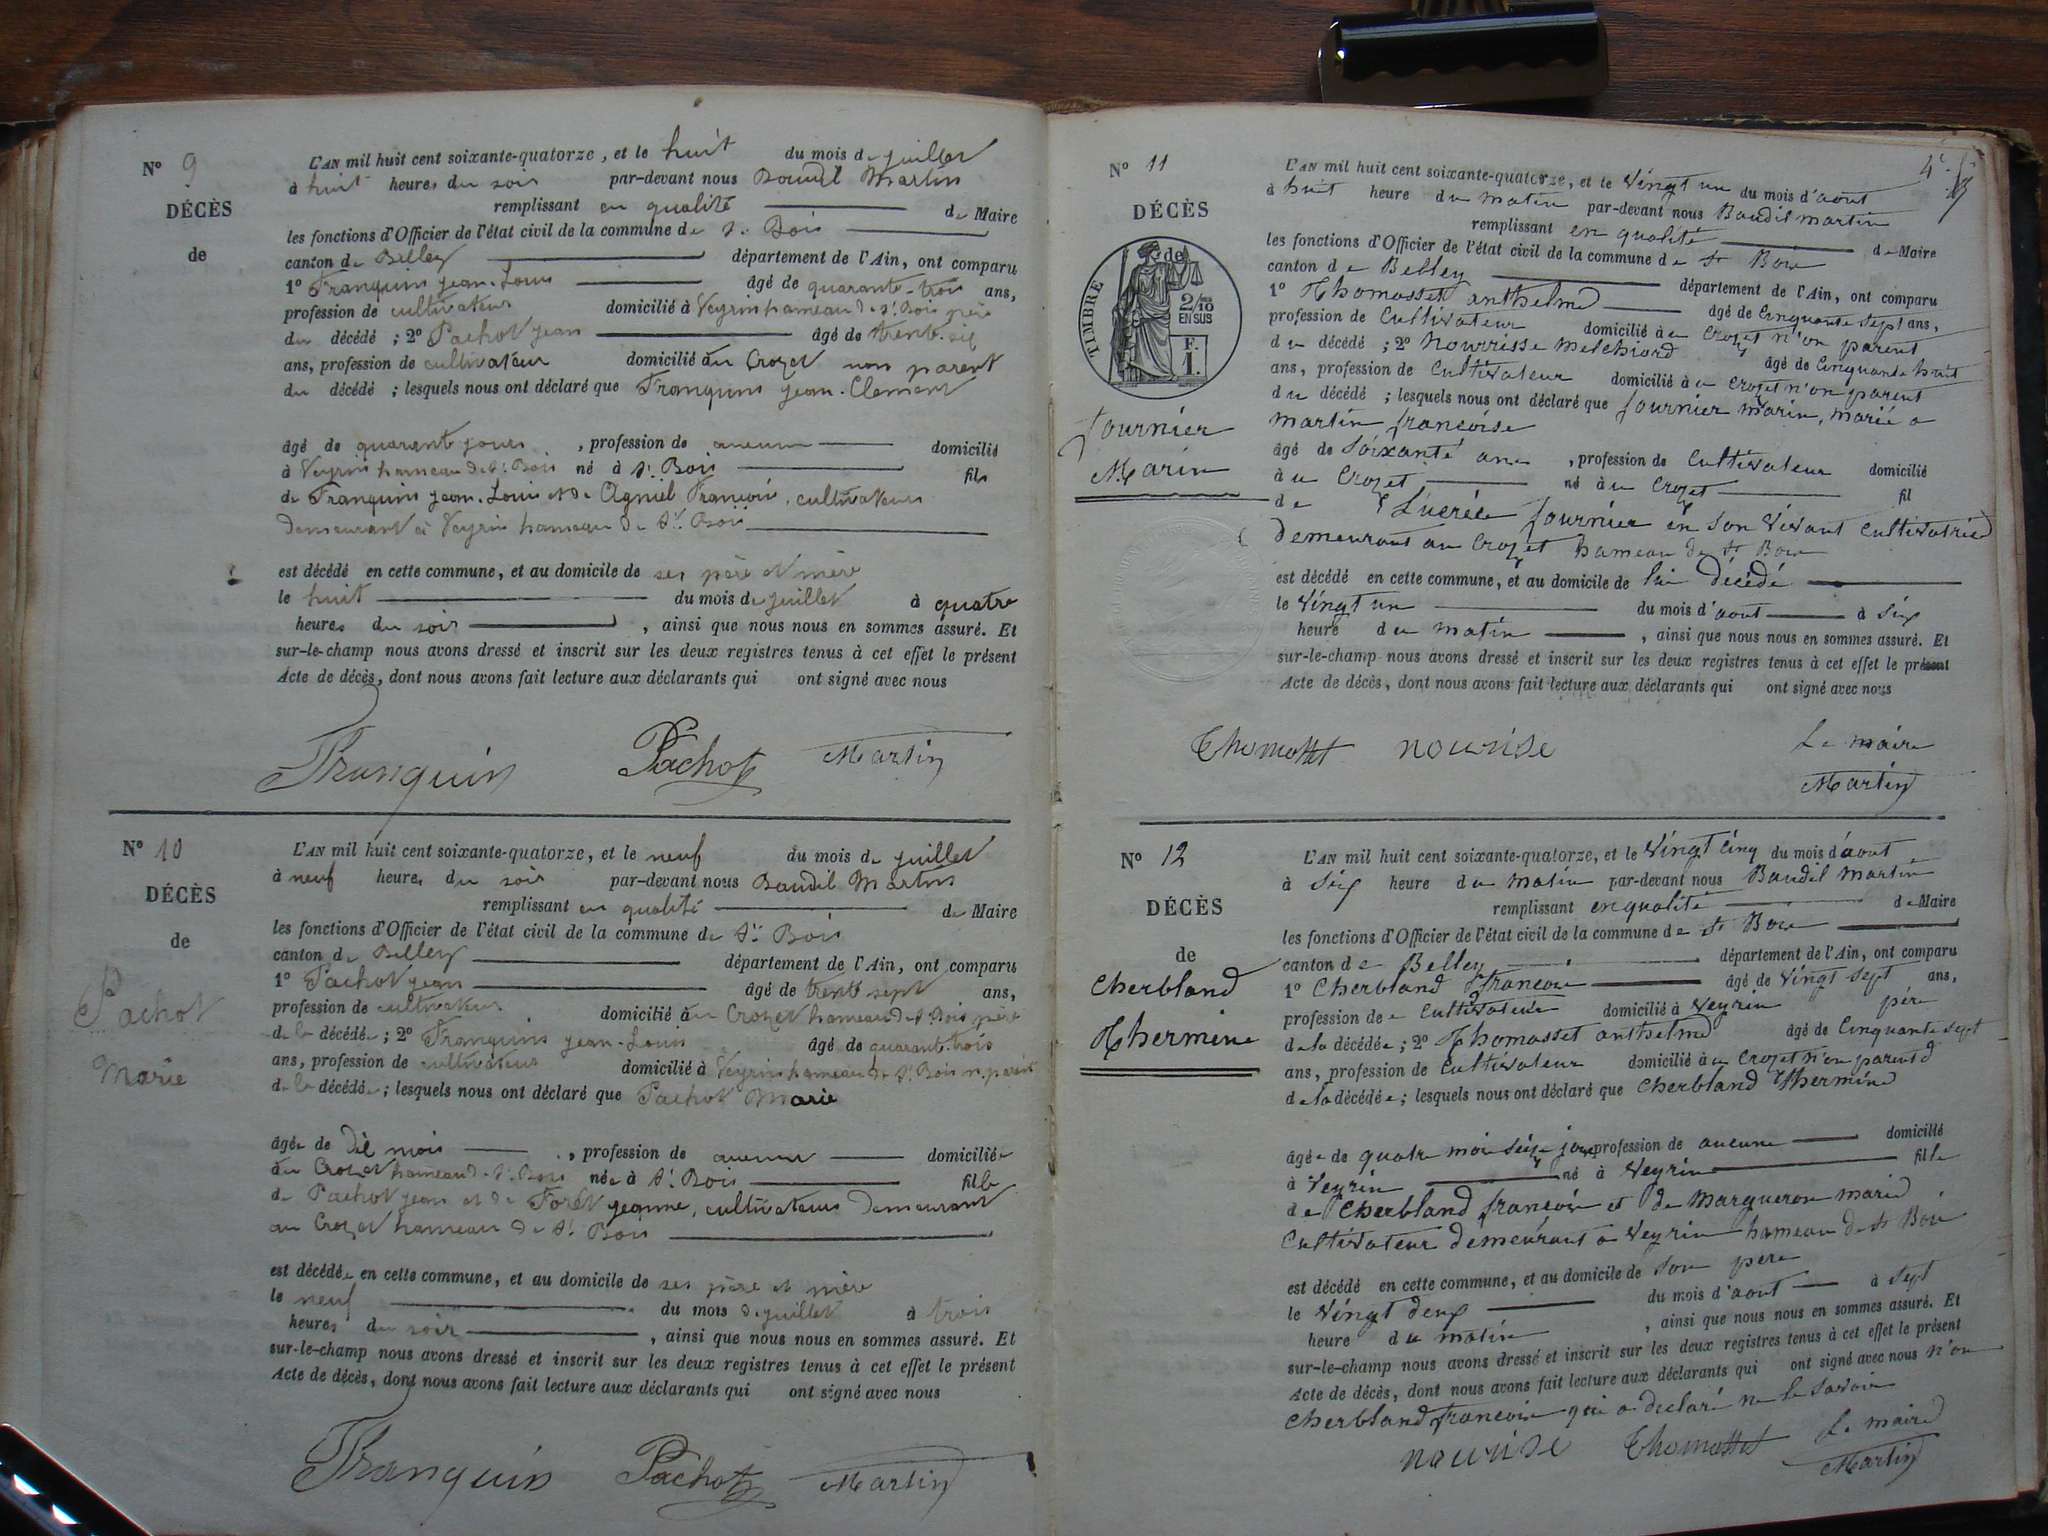 N° 9
DÉCÈS
de
L'AN mil huit cent soixante-quatorze, et le huit du mois de juillet
à huit heures du soir par-devant nous Baudil Martin
remplissant en qualité de Maire
les fonctions d'Officier de l'état civil de la commune de St Bois
canton de Belley département de l'Ain, ont comparu
1° Franquin jean-Louis âgé de quarante-trois ans,
profession de cultivateur domicilié à Veyrin hameau de St Bois père
du décédé ; 2° Pachot jean âgé de trent-six
ans, profession de cultivateur domicilié au Crozet non parent
du décédé ; lesquels nous ont déclaré que Franquin jean-Clement
âgé de quarente jours , profession de aucune domicilié
à Veyrin hameau de St Bois né à St Bois fils
de Franquin jean-Louis et de Agniel François, cultivateurs
demeurant à Veyrin hameau de St Bois
est décédé en cette commune, et au domicile de ses père et mère
le huit du mois de juillet à quatre
heures du soir , ainsi que nous nous en sommes assuré. Et
sur-le-champ nous avons dressé et inscrit sur les deux registres tenus à cet effet le présent
Acte de décès, dont nous avons fait lecture aux déclarants qui ont signé avec nous
Franquin Pachot Martin
N° 10
DÉCÈS
de
Pachot
Marie
L'AN mil huit cent soixante-quatorze, et le neuf du mois de juillet
à neuf heures du soir par-devant nous Baudil Martin
remplissant en qualité de Maire
les fonctions d'Officier de l'état civil de la commune de St Bois
canton de Belley département de l'Ain, ont comparu
1° Pachot jean âgé de trente sept ans,
profession de cultivateur domicilié au Crozet hameau de St Bois père
de la décédée ; 2° Franquin jean-Louis âgé de quarant-trois
ans, profession de cultivateur domicilié à Veyrin hameau de St Bois n. parent
de la décédée ; lesquels nous ont déclaré que Pachot Marie
âgée de dix mois , profession de aucune domiciliée
au Crozet hameau de St Bois née à St Bois fille
de Pachot jean et de Forêt jeanne, cultivateurs demeurant
au Crozet hameau de St Bois
est décédée en cette commune, et au domicile de ses père et mère
le neuf du mois de juillet à trois
heures du soir , ainsi que nous nous en sommes assuré. Et
sur-le-champ nous avons dressé et inscrit sur les deux registres tenus à cet effet le présent
Acte de décès, dont nous avons fait lecture aux déclarants qui ont signé avec nous
Franquin Pachot Martin
N° 11
DÉCÈS
de
TIMBRE
2/10
EN SUS
F.
1.
fournier
Marin
L'AN mil huit cent soixante-quatorze, et le vingt un du mois d'aout
à huit heure du matin par-devant nous Baudil martin
remplissant en qualité de Maire
les fonctions d'Officier de l'état civil de la commune de St Bois
canton de Belley département de l'Ain, ont comparu
1° Thomasset anthelme âgé de cinquante sept ans,
profession de Cultivateur domicilié au Crozet n'on parent
du décédé ; 2° nourrisse melchiord âgé de Cinquante huit
ans, profession de Cultivateur domicilié au Crozet n'on parent
du décédé ; lesquels nous ont déclaré que fournier marin, marié a
martin françoise
âgé de Soixante ans , profession de Cultivateur domicilié
au Crozet né au Crozet fil
de Lucrèce fournier en son vivant Cultivatrice
demeurant au Crozet hameau de St Bois
est décédé en cette commune, et au domicile de lui décédé
le vingt un du mois d'aout à six
heure du matin , ainsi que nous nous en sommes assuré. Et
sur-le-champ nous avons dressé et inscrit sur les deux registres tenus à cet effet le présent
Acte de décès, dont nous avons fait lecture aux déclarants qui ont signé avec nous
Thomasset nourise Le maire
Martin
N° 12
DÉCÈS
de
Cherbland
Thermine
L'AN mil huit cent soixante-quatorze, et le vingt Cinq du mois d'aout
à six heure du matin par-devant nous Baudil martin
remplissant en qualité de Maire
les fonctions d'Officier de l'état civil de la commune de St Bois
canton de Belley département de l'Ain, ont comparu
1° Cherbland francois âgé de vingt sept ans,
profession de Cultivateur domicilié à Veyrin père
de la décédée ; 2° Thomasset anthelme âgé de Cinquante sept
ans, profession de Cultivateur domicilié au Crozet n'on parent
de la décédée ; lesquels nous ont déclaré que Cherbland Thermine
âgée de quatre mois seize jours profession de aucune domicilié
à Veyrin né à Veyrin fille
de Cherbland francois et de Margueron marie
Cultivateur demeurant a Veyrin hameau de St Bois
est décédé en cette commune, et au domicile de son père
le vingt deux du mois d'aout à sept
heure du matin , ainsi que nous nous en sommes assuré. Et
sur-le-champ nous avons dressé et inscrit sur les deux registres tenus à cet effet le présent
Acte de décès, dont nous avons fait lecture aux déclarants qui ont signé avec nous n'on
Cherbland francois qui a declaré ne le savoir
nourise Thomasset Le maire
Martin